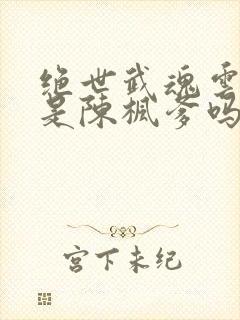 绝世武魂雲
是陳楓爹吗
宫下未纪